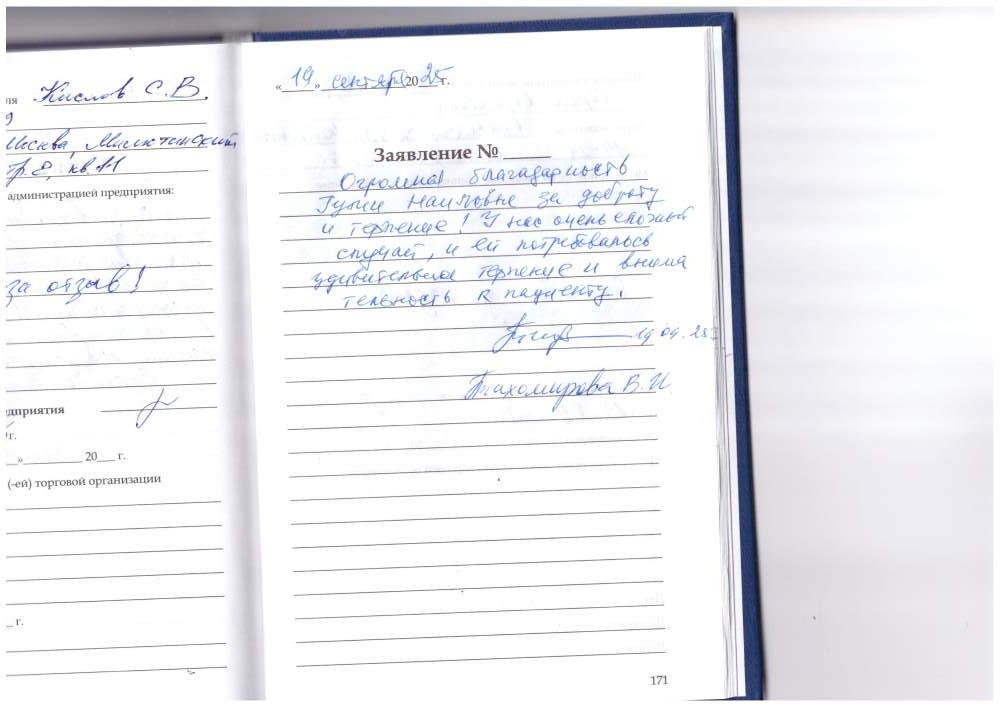 ля Кислов С.В.
9
Москва,
кв. 11
администрацией предприятия:
за отзыв!
едприятия
г.
» 20 г.
(-ей) торговой организации
г.
« 19 » сентября 20 25 г.
Заявление №
Огромная благодарность
Наимовне за доброту
и терпение! У нас очень сложный
случай, и ей потребовалось
удивительное терпение и внима
тельность к пациенту.
19.09.25г
Тихомирова В.И.
171